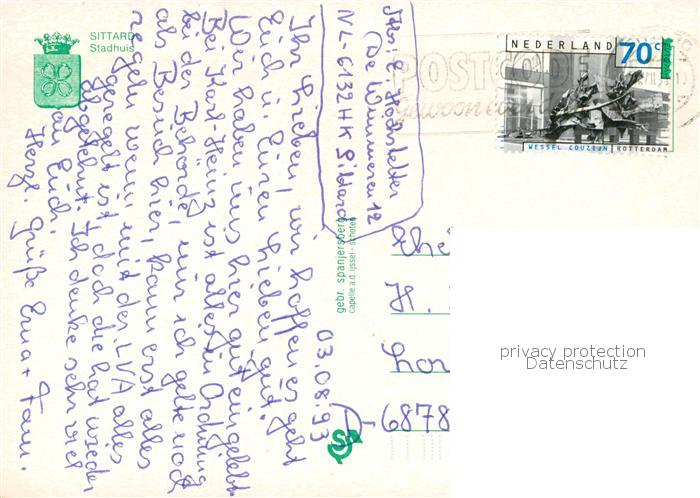 SITTARD
Stadhuis
NEDERLAND 70c
WESSEL COUZIJN ROTTERDAM
POSTCODE
gewoon
(De Wimmeren 12
NL-6132HK Sittard
gebr. spanjersberg
capelle a.d. ijssel - schoten
03.08.93
Ihr Lieben, wir hoffen es geht
Euch u. Euren Lieben gut.
Wir haben uns hier gut eingelebt.
Bei Karl-Heinz ist alles in Ordnung
bei der Behörde, nur ich gelte noch
als Besuch hier, kann erst alles
regeln wenn mit der LVA alles
geregelt ist, doch die hat wieder
abgelehnt. Ich denke sehr viel
an Euch.
Herzl. Grüße Erna + Fam.
H.
6878
privacy protection
Datenschutz